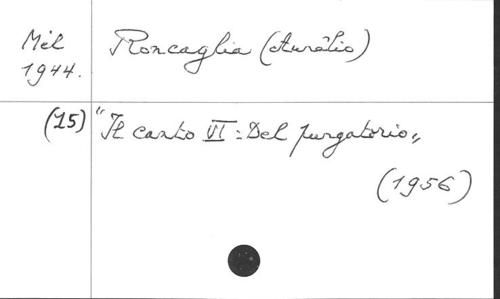 Mél
1944.
Roncaglia (Aurélio)
(15) "Il canto VI: Del purgatorio„
(1956)